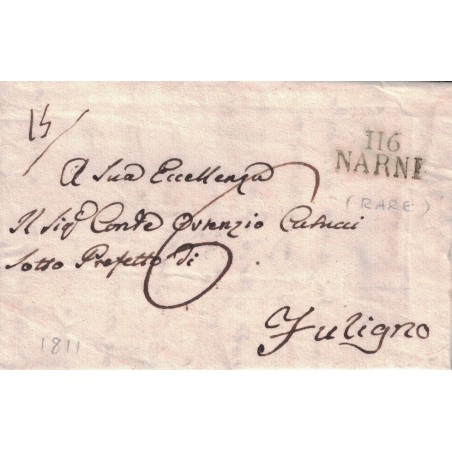 116
NARNI
(RARE)
A Sua Eccellenza
Il Sig.e Conte Orenzio
Sotto Prefetto di
6
Fuligno
1811